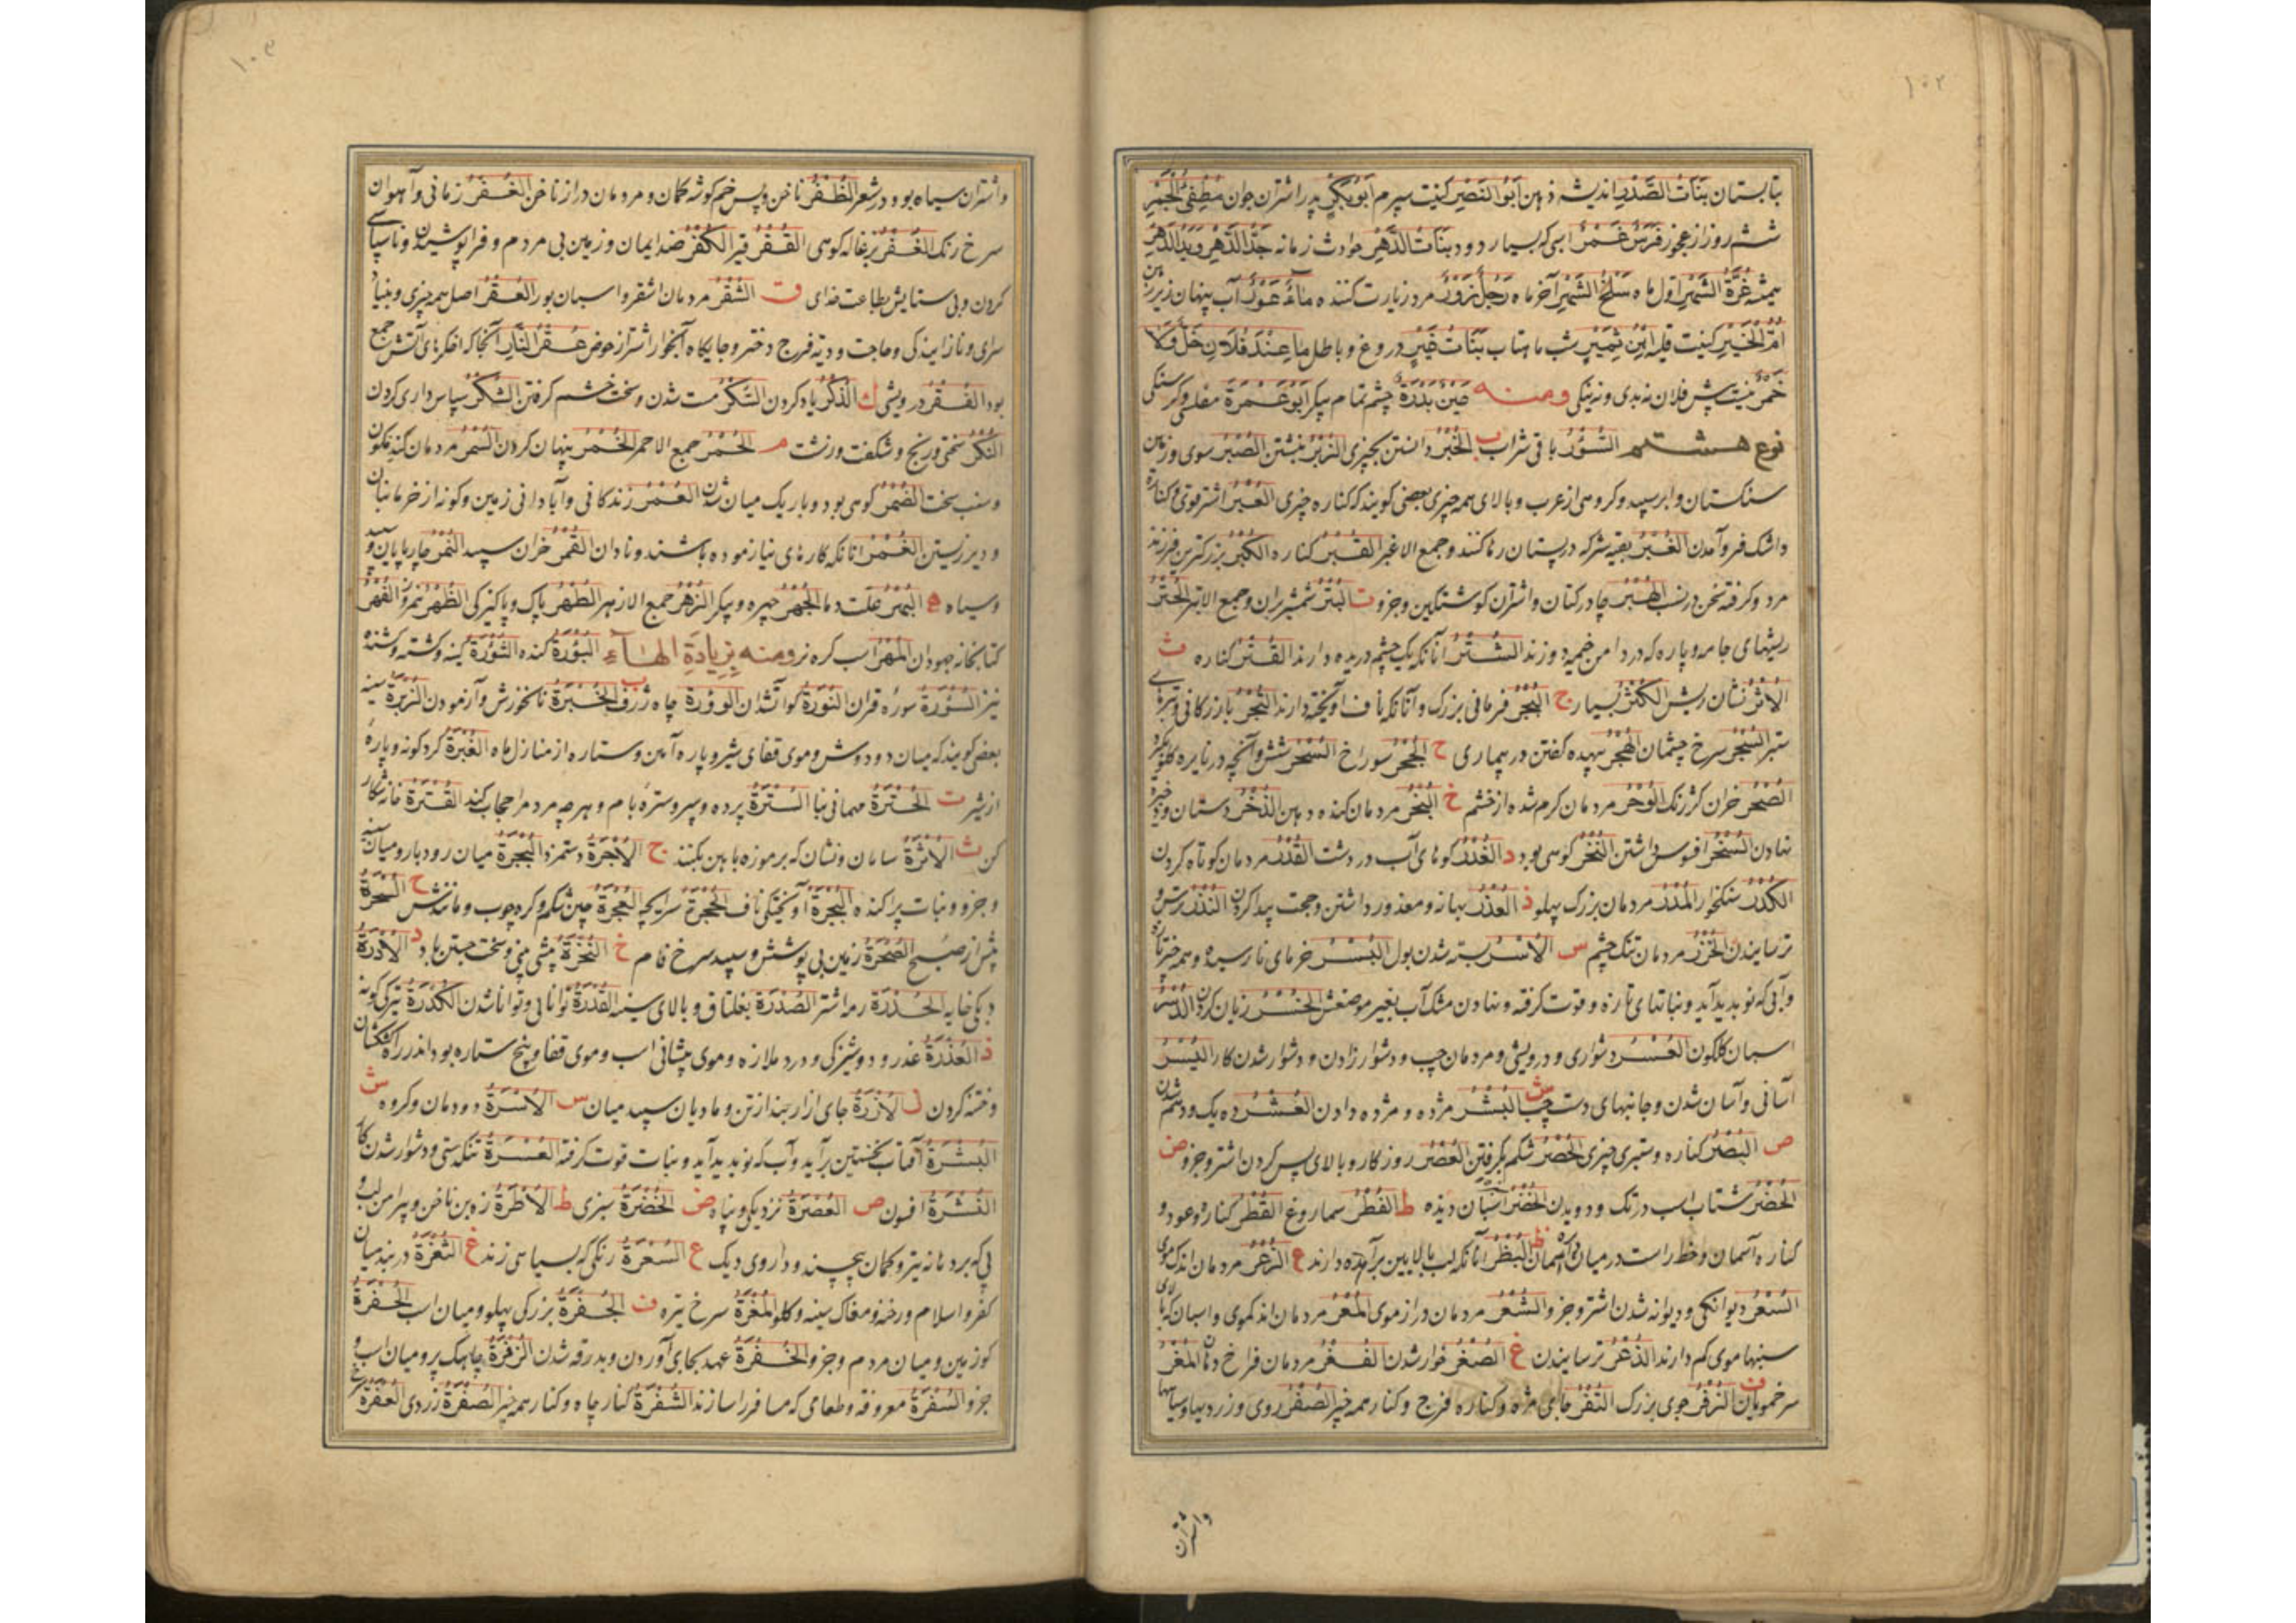 ۱۰۲
بتابستان بَنَاتُ الصَّدْرِ اندیشه ذهن اَبُو النَّصْرِ کنیت سپرم اَبُو بَكْرٍ پدر اشتران جوان مُطْفِئُ الْجَمْرِ
ششم روز از عجوز فَرَسٌ غَمْرٌ اسبی که بسیار دود بَنَاتُ الدَّهْرِ حوادث زمانه جَدَّ الدَّهْرِ وَیَدَ الدَّهْرِ
همیشه غُرَّةُ الشَّهْرِ اول ماه سَلْخُ الشَّهْرِ آخر ماه رَجُلٌ زَوْرٌ مرد زیارت کننده مَاءٌ غَوْرٌ آب پنهان زیر زمین
اُمُّ الْخَیْرِ کنیت قیله اِبْنُ ثَمِیْرٍ شب ماهتاب بَنَاتُ غَیْرٍ دروغ و باطل مَا عِنْدَ فُلَانٍ خَلٌّ وَلَا
خَمْرٌ نیست پیش فلان نه بدی و نه نیکی ومنه عَیْنٌ بَدْرَةٌ چشم تمام پیکر اَبُو عَمْرَةَ مفلسی و گرسنگی
نوع هشتم السُّؤْرُ باقی شراب ب الخُبْرُ دانستن بچیزی الزُّبْرُ نبشتن الصُّبْرُ سوی و زمین
سنگستان و ابر سپید و گروهی از عرب و بالای همه چیزی بعضی گویند که کناره چیزی العُبْرُ اشتر قوی و کناره
و اشک فرو آمدن الغُبْرُ بقیه شیر که در پستان رها کنند و جمع الاغبر القُبْرُ کناره الکُبْرُ بزرگترین فرزند
مرد و گرفته سخن در نسب الهُبْرُ چادر کتان و اشتران گوشتگین و جزو ت البُتْرُ شمشیر بران و جمع الابتر الحُتْرُ
ریشهای جامه و پاره که در دامن خیمه دوزند الشُّتْرُ آنانکه یک چشم دریده دارند القُتْرُ کناره ث
الاُثْرُ نشان ریش الکُثْرُ بسیار ج البُجْرُ فرمانی بزرگ و آنانکه ناف آویخته دارند التُّجْرُ بازرگانی و تیرهٔ
ستبر السُّجْرُ سرخ چشمان الهُجْرُ بیهده گفتن در بیماری ح الجُحْرُ سوراخ السُّحْرُ شش و آنچه در نایره گلو گیرد
الصُّحْرُ خران گرزنگ الوُحْرُ مردمان گرم شده از خشم خ البُخْرُ مردمان گنده دهن الذُّخْرُ دستان و ذخیره
نهادن السُّخْرُ افسوس داشتن النُّخْرُ گوهی بود د الغُدْرُ گوهای آب در دشت القُدْرُ مردمان کوتاه گردن
الکُدْرُ سنگخوار المُدْرُ مردمان بزرگ پهلو ذ العُذْرُ بهانه و معذور داشتن و حجت پیدا کردن النُّذْرُ ترس و
ترسانیدن الخُزْرُ مردمان تنگ چشم س الاُسْرُ بسته شدن بول البُسْرُ خرمای نارسیده و همه چیز تازه
و آبی که نو بدید آید و نباتهای تازه و قوت گرفته و نهادن مشک آب بغیر موضعش الخُسْرُ زیان کردن الدُّسْرُ
اسبان گلگون العُسْرُ دشواری و درویشی و مردمان چپ و دشوار زادن و دشوار شدن کار الیُسْرُ
آسانی و آسان شدن و جانبهای دست چپ ش البُشْرُ مژده و مژده دادن العُشْرُ ده یک و دشتم شدن
ص البُصْرُ کناره و ستبری چیزی الحُصْرُ شکم بگرفتن العُصْرُ روزگار و بالای پس کردن اشتر و جزو ض
الحُضْرُ شتاب اسب در تک و دویدن الخُضْرُ اسبان دیزه ط الفُطْرُ سماروغ القُطْرُ کناره و عود و
کناره آسمان و خط راست در میان آسمان ظ البُظْرُ آنانکه لب بالایین برآمده دارند ع الزُّعْرُ مردمان اندک موی
السُّعْرُ دیوانگی و دیوانه شدن اشتر و جزو الشُّعْرُ مردمان دراز موی المُعْرُ مردمان اندک موی و اسبان که پا
سنبها موی کم دارند الذُّعْرُ ترسانیدن غ الصُّغْرُ خوار شدن الفُغْرُ مردمان فراخ دهان المُغْرُ
سرخمویان ف الزُّفْرُ جوی بزرگ الشُّفْرُ جای مژه و کناره فرج و کنار همه چیز الصُّفْرُ روی و زردیها و سیاهها
واشتران
۱۰۳
واشتران سیاه بود در شعر الظُّفْرُ ناخن و پس خم گوشه کمان و مردمان دراز ناخن الغُفْرُ زمانی و آهوان
سرخ رنگ الغُفْرُ بزغاله کوهی القُفْرُ قیر الکُفْرُ ضد ایمان و زمین بی مردم و فراپوشیدن و ناسپاسی
کردن و بی ستایش بطاعت خدای ق الشُّقْرُ مردمان اشقر و اسبان بور العُقْرُ اصل همه چیزی و بنیاد
سرای و نازایندگی و حاجت و دیه فرج دختر و جایگاه آبخوار اشتر از حوض عُقْرُ النَّارِ آنجا که اخگرهای آتش جمع
بود الفُقْرُ درویشی ك الذُّكْرُ یاد کردن السُّكْرُ مست شدن و سخت خشم گرفتن الشُّكْرُ سپاس داری کردن
النُّكْرُ سختی و رنج و شگفت و زشت م الحُمْرُ جمع الاحمر الخُمْرُ پنهان کردن السُّمْرُ مردمان گندم گون
و سنب سخت الضُّمْرُ گوهی بود و باریک میان شدن العُمْرُ زندگانی و آبادانی زمین و گونه از خرما بنان
و دیر زیستن الغُمْرُ آنانکه کارهای نیازموده باشند و نادان القُمْرُ خران سپید النُّمْرُ چارپایان سپید
و سیاه ه البُهْرُ علت دما الجُهْرُ چهره و پیکر الزُّهْرُ جمع الازهر الطُّهْرُ پاک و پاکیزگی الظُّهْرُ نیمروز الفُهْرُ
کتابخانه جهودان المُهْرُ اسب کره نر ومنه بزیادة الهاء البُؤْرَةُ کنده الثُّؤْرَةُ کینه و کشته و کشنده
نیز السُّؤْرَةُ سورهٔ قران النُّؤْرَةُ گو آتشدان الوُؤْرَةُ چاه ژرف ب الخُبْرَةُ نانخورش و آزمودن الزُّبْرَةُ سینه
بعضی گویند که میان دو دوش و موی قفای شیر و پاره آهن و ستاره از منازل ماه الغُبْرَةُ گردگونه و پارهٔ
از شیر ت الخُتْرَةُ مهمانی بنا السُّتْرَةُ پرده و سپر و سترهٔ بام و هرچه مردم را حجاب کند القُتْرَةُ خانه شکار
کن ث الاُثْرَةُ سامان و نشان که بر موزه باهن بکنند ج الاُجْرَةُ دستمزد البُجْرَةُ میان رودبار و میان سینه
و جزو و نبات پراکنده البُجْرَةُ آویختگی ناف الحُجْرَةُ سرایچه العُجْرَةُ چین شکم و گره چوب و مانندش ح السُّحْرَةُ
پیش از صبح الصُّحْرَةُ زمین بی پوشش و سپید سرخ فام خ النُّخْرَةُ پیشی بینی و سخت جستن باد د الاُدْرَةُ
دبگی خایه الحُدْرَةُ رمه اشتر الصُّدْرَةُ بغلتاق و بالای سینه القُدْرَةُ توانایی و توانا شدن الکُدْرَةُ تیرگی گونه
ذ العُذْرَةُ عذر و دوشیزگی و درد ملازه و موی پیشانی اسب و موی قفا و پنج ستاره بود اندر راه کهکشان
و ختنه کردن ز الاُزْرَةُ جای ازار بند از تن و مادیان سپید میان س الاُسْرَةُ دودمان و گروه ش
البُشْرَةُ آفتاب نخستین برآید و آب که نو بدید آید و نبات قوت گرفته العُسْرَةُ تنگدستی و دشوار شدن کار
النُّشْرَةُ افسون ص العُصْرَةُ نزدیکی و پناه ض الخُضْرَةُ سبزی ط الاُطْرَةُ زه بن ناخن و پیرامن لب و
پی که بر دهانه تیر و کمان پیچند و داروی دیگ ع السُّعْرَةُ رنگی که بسیاهی زند غ الثُّغْرَةُ دربند میان
کفر و اسلام و رخنه و مغاک سینه و گلو المُغْرَةُ سرخ تیره ف الجُفْرَةُ بزرگی پهلو و میان اسب الحُفْرَةُ
گو زمین و میان مردم و جزو الخُفْرَةُ عهد بجای آوردن و بدرقه شدن الزُّفْرَةُ چابک پر و میان اسب و
جزو السُّفْرَةُ معروفه و طعامی که مسافر را سازند الشُّفْرَةُ کنار چاه و کنار همه چیز الصُّفْرَةُ زردی العُفْرَةُ